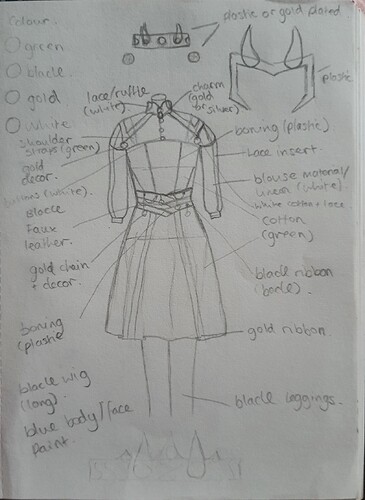 Colour.
green
black
gold
white
plastic or gold plated
plastic
lace/ruffle
(white)
charm
(gold
or
silver)
shoulder
straps (green)
gold
decor.
(white).
Black
Faux
leather.
gold chain
+ decor.
boning
(plastic
boning (plastic)
lace insert.
blouse material/
(white)
white cotton + lace
cotton
(green)
black ribbon
gold ribbon.
black wig
(long).
blue body/face
paint.
black leggings.